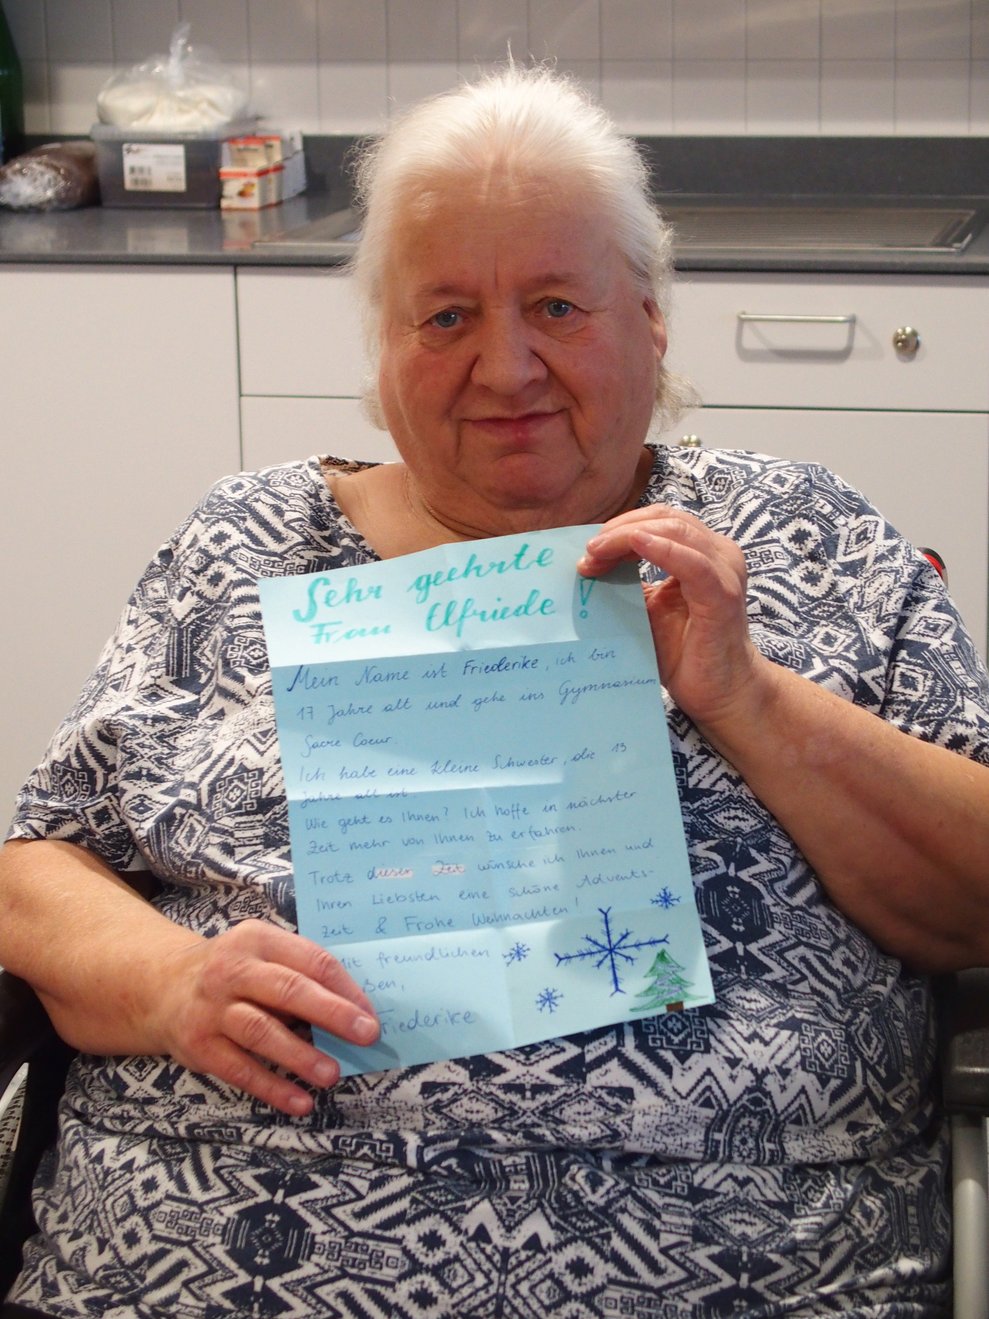 Sehr geehrte
Frau Elfriede!
Mein Name ist Friederike, ich bin
17 Jahre alt und gehe ins Gymnasium
Sacre Coeur.
Ich habe eine kleine Schwester, die 13
Jahre alt ist.
Wie geht es Ihnen? Ich hoffe in nächster
Zeit mehr von Ihnen zu erfahren.
Trotz dieser Zeit wünsche ich Ihnen und
Ihren Liebsten eine schöne Advents-
zeit & Frohe Weihnachten!
Mit freundlichen
ßen,
Friederike